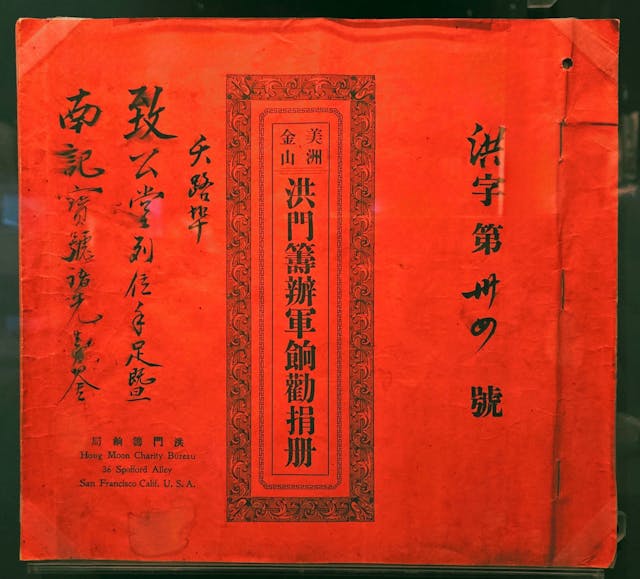 洪字第卅四號
美洲
金山
洪門籌辦軍餉勸捐册
路埠
致公堂列位手足暨
南記寶號諸先
洪門籌餉局
Hong Moon Charity Bureau
36 Spofford Alley
San Francisco Calif. U. S. A.